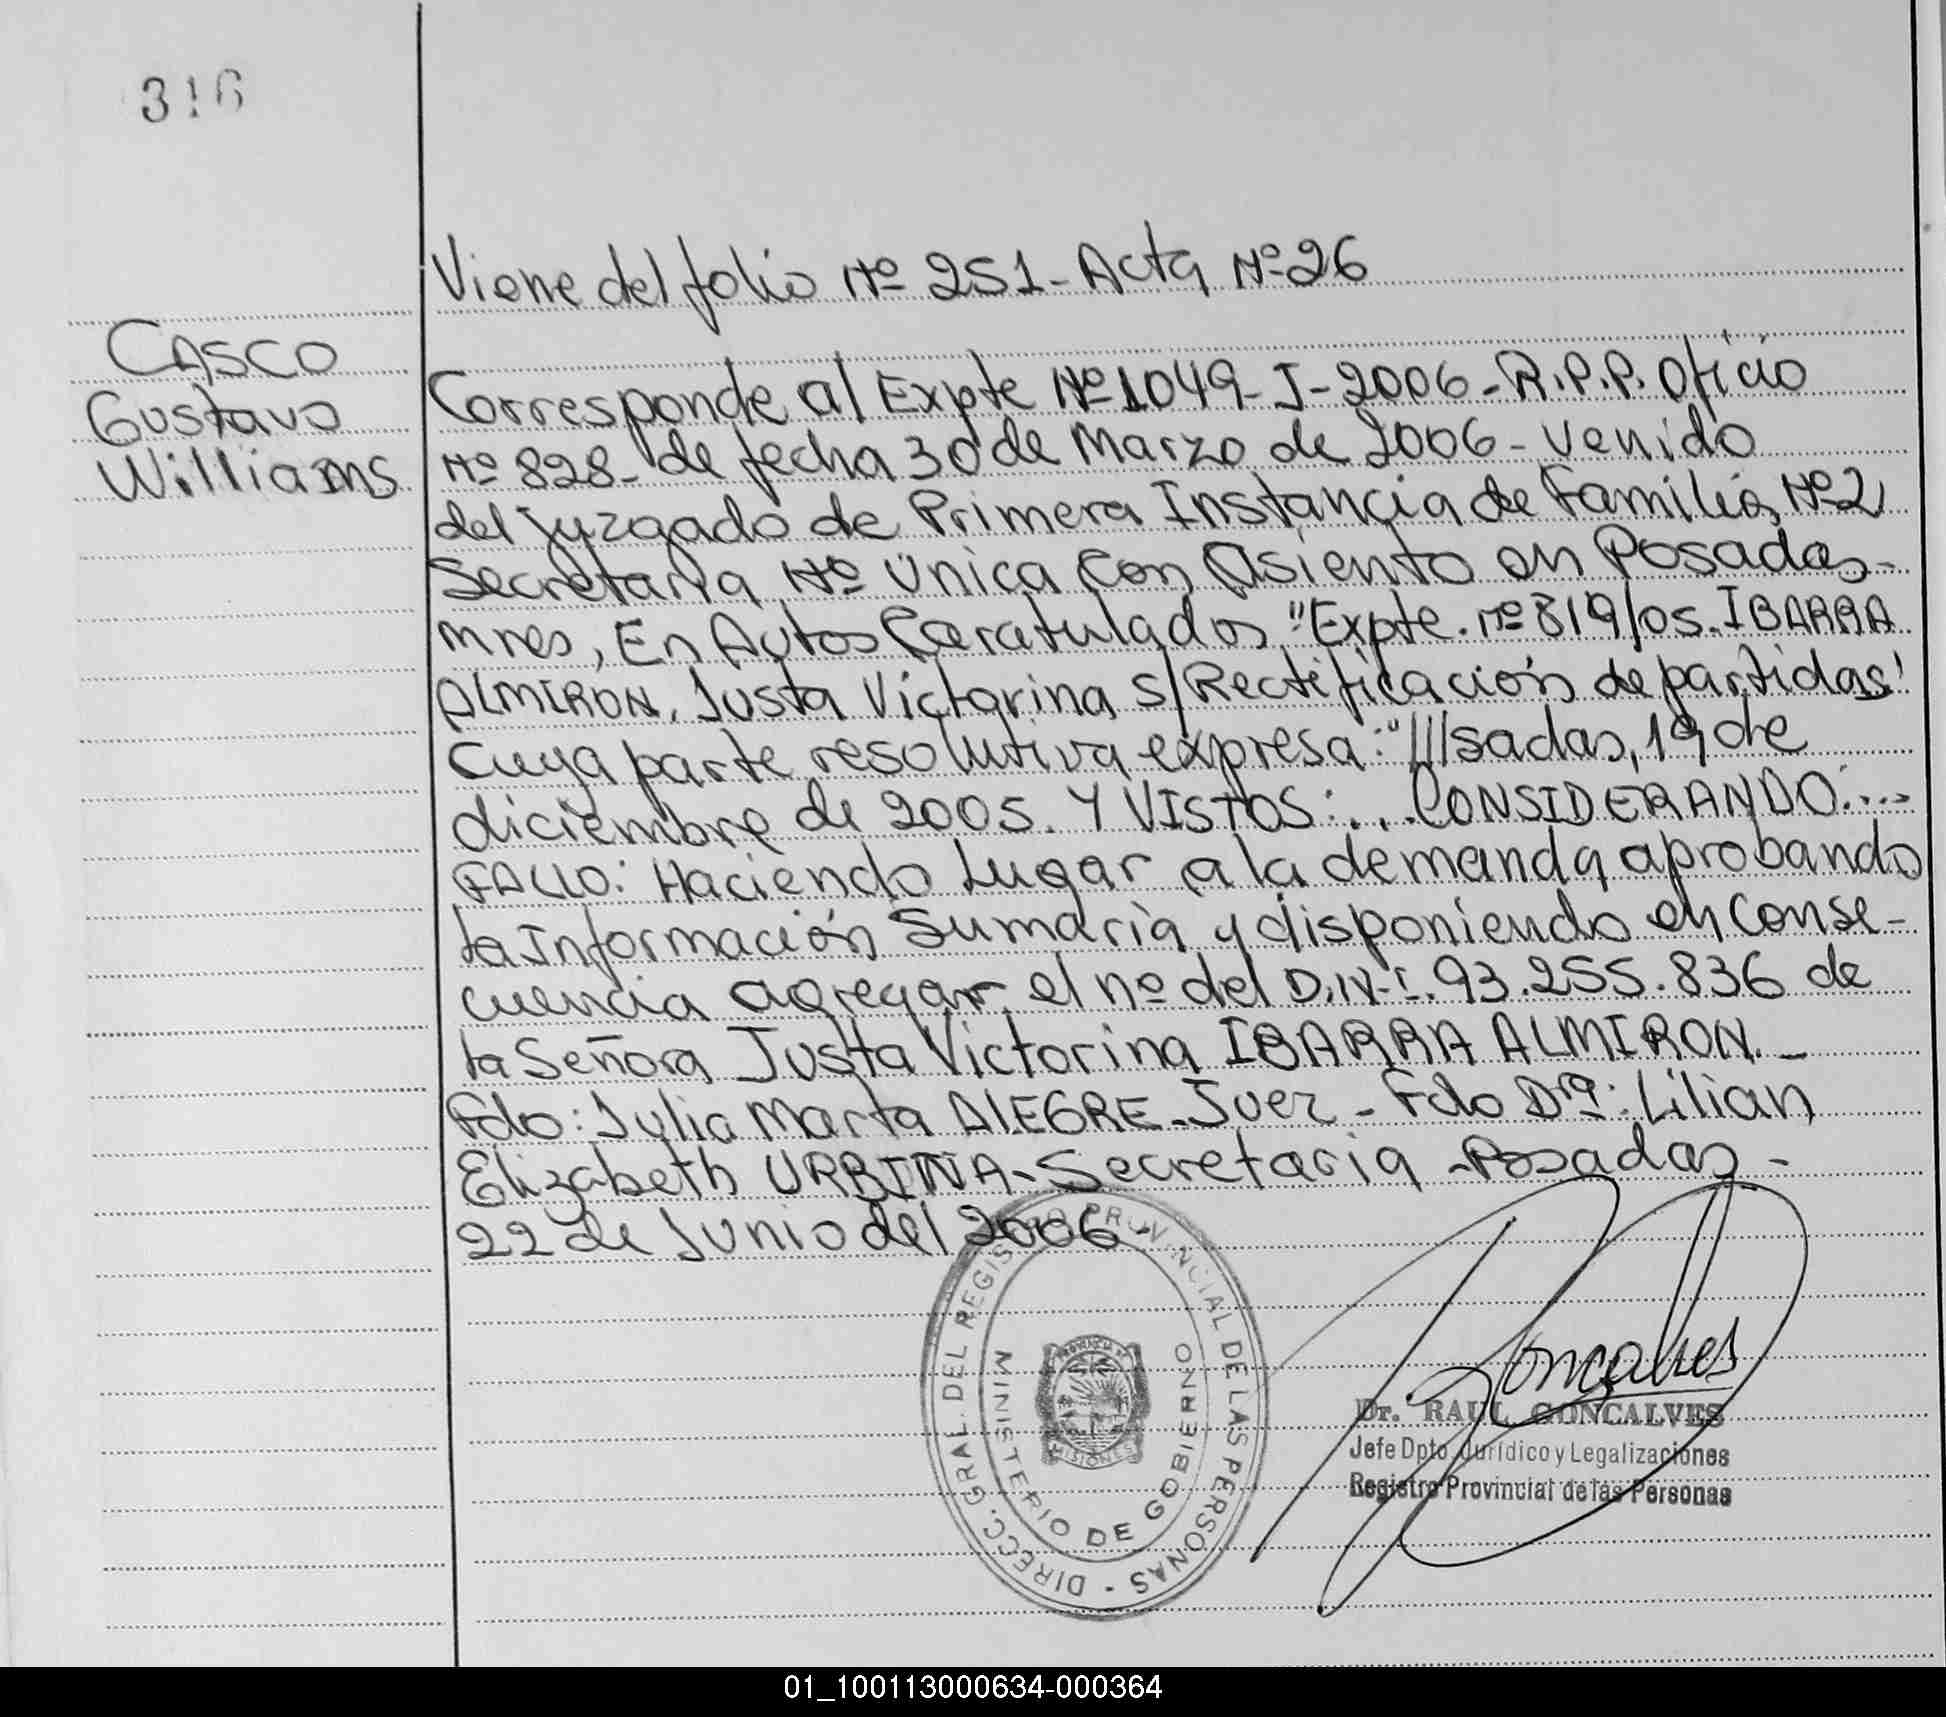 316
Viene del folio Nº 251 - Acta Nº 26
CASCO
Gustavo
Williams
Corresponde al Expte Nº 1049 - J - 2006 - R.P.P. Oficio
Nº 828 - de fecha 30 de Marzo de 2006 - venido
del juzgado de Primera Instancia de Familia Nº 2
Secretaria Nº Unica con asiento en Posadas -
mnes, En Autos Caratulados "Expte. nº 819/05. IBARRA
ALMIRON, Justa Victorina s/Rectificación de partidas"
cuya parte resolutiva expresa: "///sadas, 19 de
diciembre de 2005. Y VISTOS:... CONSIDERANDO:...
FALLO: Haciendo Lugar a la demanda aprobando
la Información Sumaria y disponiendo en conse-
cuencia agregar el nº del D.N.I. 93.255.836 de
la Señora Justa Victorina IBARRA ALMIRON. -
Fdo: Julia Marta ALEGRE - Juez - Fdo Drª: Lilian
Elizabeth URBINA - Secretaria - Posadas -
22 de Junio del 2006 -
DIRECC. GRAL. DEL REGISTRO PROVINCIAL DE LAS PERSONAS -
MINISTERIO DE GOBIERNO
PROVINCIA DE
MISIONES
Goncalves
Dr. RAUL GONCALVES
Jefe Dpto. Jurídico y Legalizaciones
Registro Provincial de las Personas
01_100113000634-000364